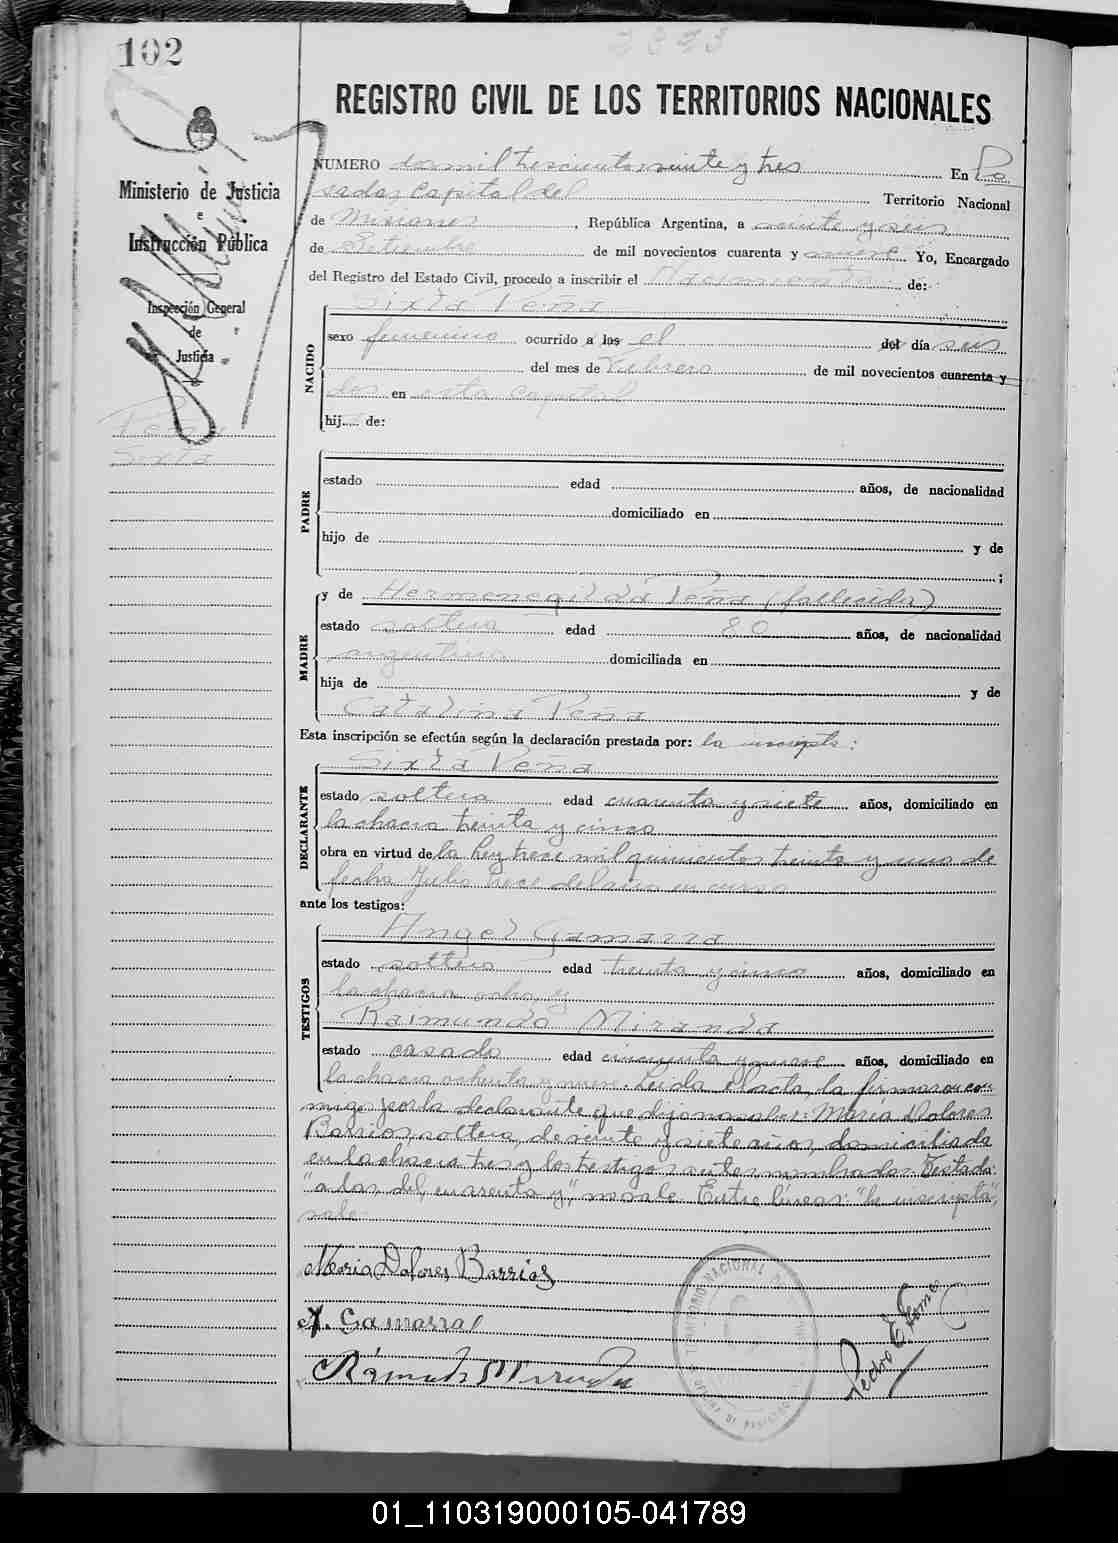 102
2323
REGISTRO CIVIL DE LOS TERRITORIOS NACIONALES
Ministerio de Justicia
e
Instrucción Pública
Inspección General
de
Justicia
Peña
Sixta
NUMERO dos mil trescientos veinte y tres En Po
sadas Capital del Territorio Nacional
de Misiones, República Argentina, a veinte y seis
de Setiembre de mil novecientos cuarenta y nueve Yo, Encargado
del Registro del Estado Civil, procedo a inscribir el Nacimiento de:
NACIDO
Sixta Peña
sexo femenino ocurrido a las el del día seis
del mes de Febrero de mil novecientos cuarenta y
dos en esta capital
hij de:
PADRE
estado edad años, de nacionalidad
domiciliado en
hijo de y de
;
MADRE
y de Hermenegilda Peña (fallecida)
estado soltera edad 80 años, de nacionalidad
argentina domiciliada en
hija de y de
Catalina Peña
Esta inscripción se efectúa según la declaración prestada por: la inscripta:
DECLARANTE
Sixta Peña
estado soltera edad cuarenta y siete años, domiciliado en
la chacra treinta y cinco
obra en virtud de la Ley trece mil quinientos treinta y uno de
fecha Julio trece del año en curso
ante los testigos:
TESTIGOS
Angel Gamarra
estado soltero edad treinta y cinco años, domiciliado en
la chacra ocho, y
Raimundo Miranda
estado casado edad cincuenta y nueve años, domiciliado en
la chacra ochenta y nueve. Leida el acta, la firmaron con
migo por la declarante que dijo no saber: María Dolores
Barrios, soltera, de veinte y siete años, domiciliada
en la chacra tres y los testigos antes nombrados. Testado:
"a las, del, cuarenta y", no vale. Entre líneas: "la inscripta",
vale
Maria Dolores Barrios
A. Gamarra
Raimundo Miranda
Pedro E. Gome
TERRITORIO NACIONAL DE
01_110319000105-041789